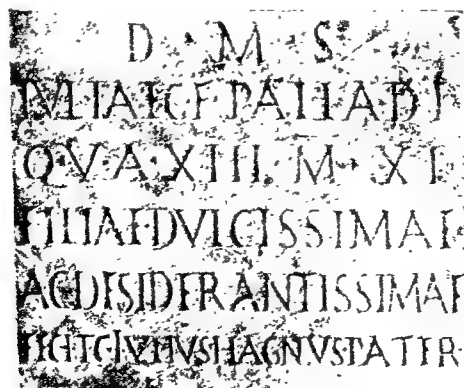 D · M · S
IVLIAE C F PALLADI
Q · V · A · XIII · M · XI
FILIAE DVLCISSIMAE
AC DESIDERANTISSIMAE
FECIT C IVLIVS MAGNVS PATER